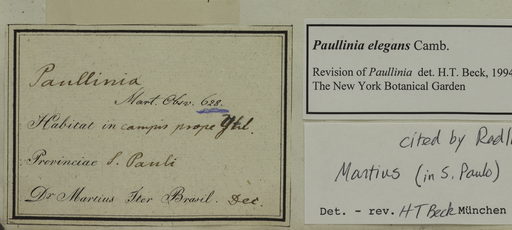 Paullinia
Mart. Obsv. 628.
Habitat in campis prope Ytú.
Provinciae S. Pauli
Dr Martius Iter Brasil. Dec.
Paullinia elegans Camb.
Revision of Paullinia det. H.T. Beck, 1994
The New York Botanical Garden
cited by Radl
Martius (in S. Paulo)
Det. - rev. HT Beck München